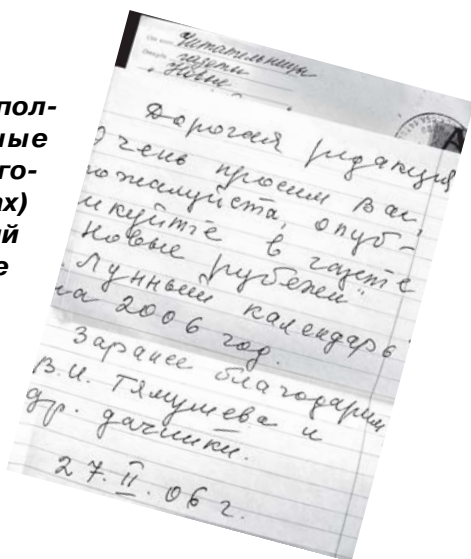 пол-
ные
го-
ах)
ий
е
От кого Читательницы
Откуда газеты
"Новые
Дорогая редакция
Очень просим Вас,
пожалуйста, опуб-
ликуйте в газете
"Новые рубежи"
Лунный календарь
на 2006 год.
Заранее благодарим
В.И. Тямушева и
др. дачники.
27.II.06 г.